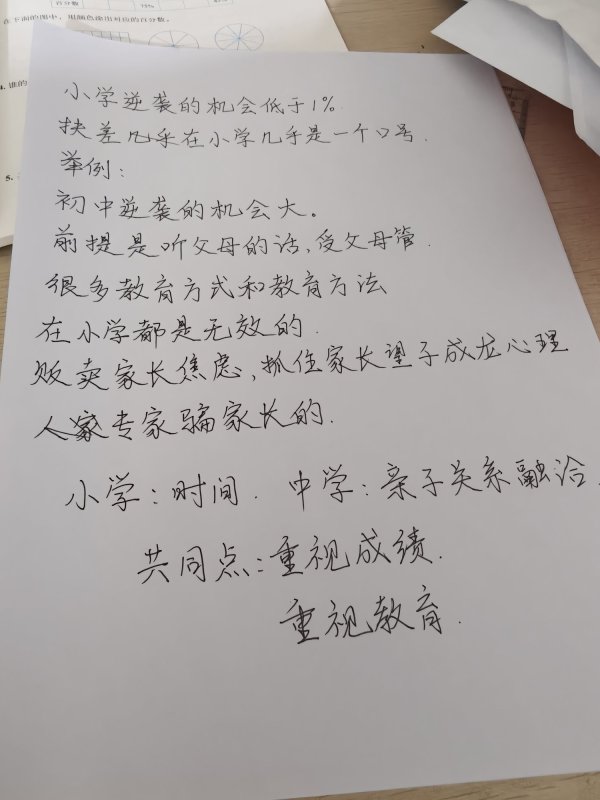 百分数
75%
在下面的图中，用颜色涂出相应的百分数。
小学逆袭的机会低于1%.
扶差几乎在小学几乎是一个口号.
举例：
初中逆袭的机会大。
前提是听父母的话,受父母管.
很多教育方式和教育方法
在小学都是无效的.
贩卖家长焦虑,抓住家长望子成龙心理
人家专家骗家长的.
小学：时间. 中学：亲子关系融洽.
共同点：重视成绩.
重视教育.
5.